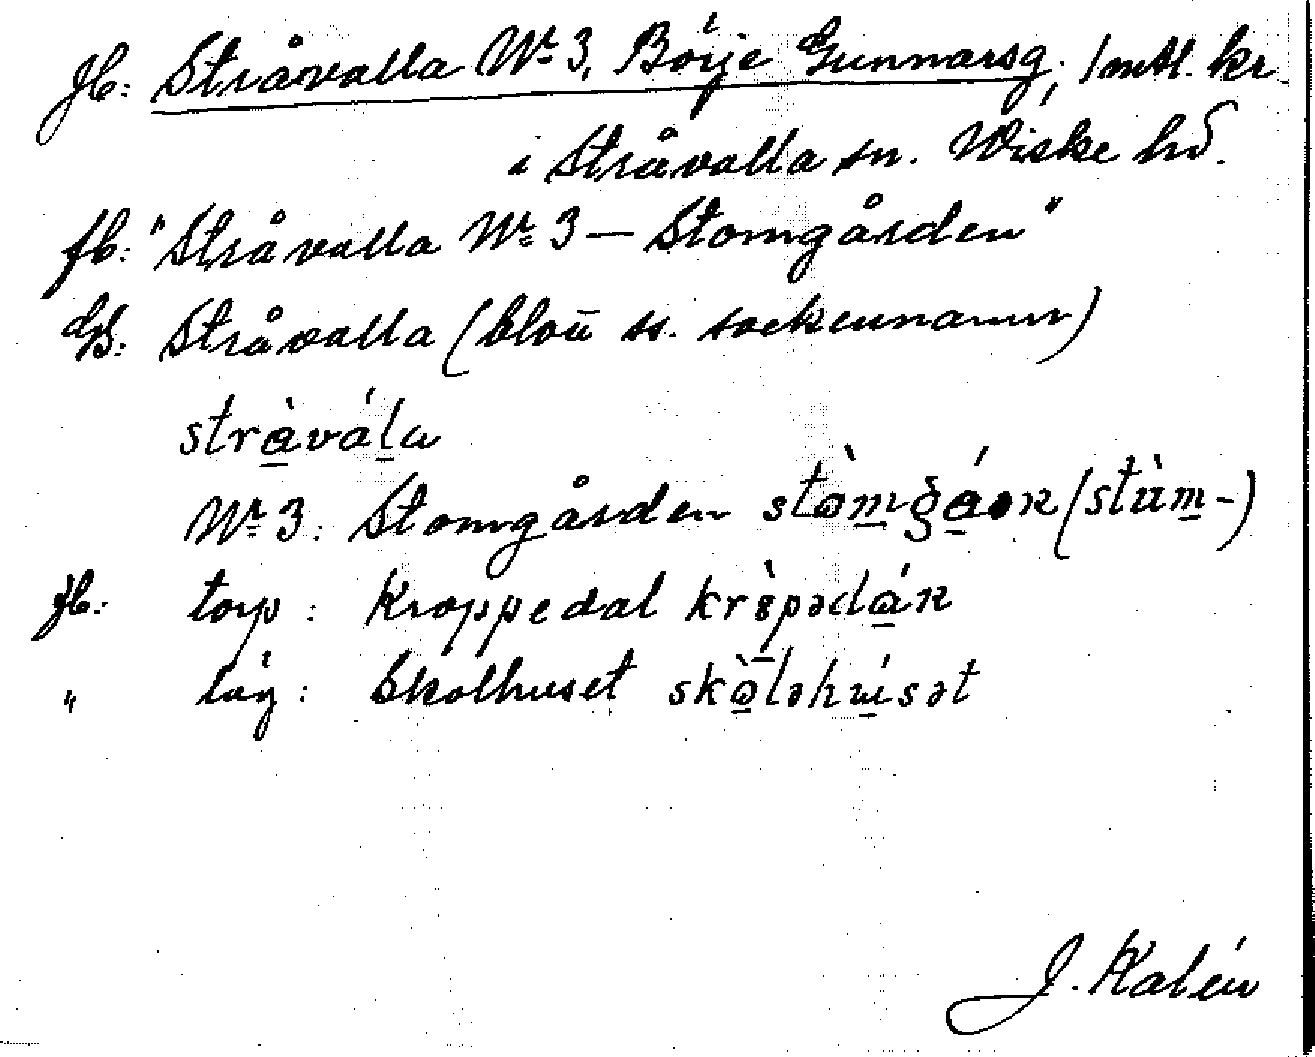 Jb: Stråvalla Nr 3, Börje Gunnarsg, 1 mtl. kr
i Stråvalla sn. Wiske hd.
fb: "Stråvalla Nr 3 – Stomgården"
Stråvalla (blott ss. sockennamn)
stràvála
Nr 3: Stomgården (stùm-)
fb: torp: Kroppedal
" läg: Skolhuset skòləhúsət
J. Kalén